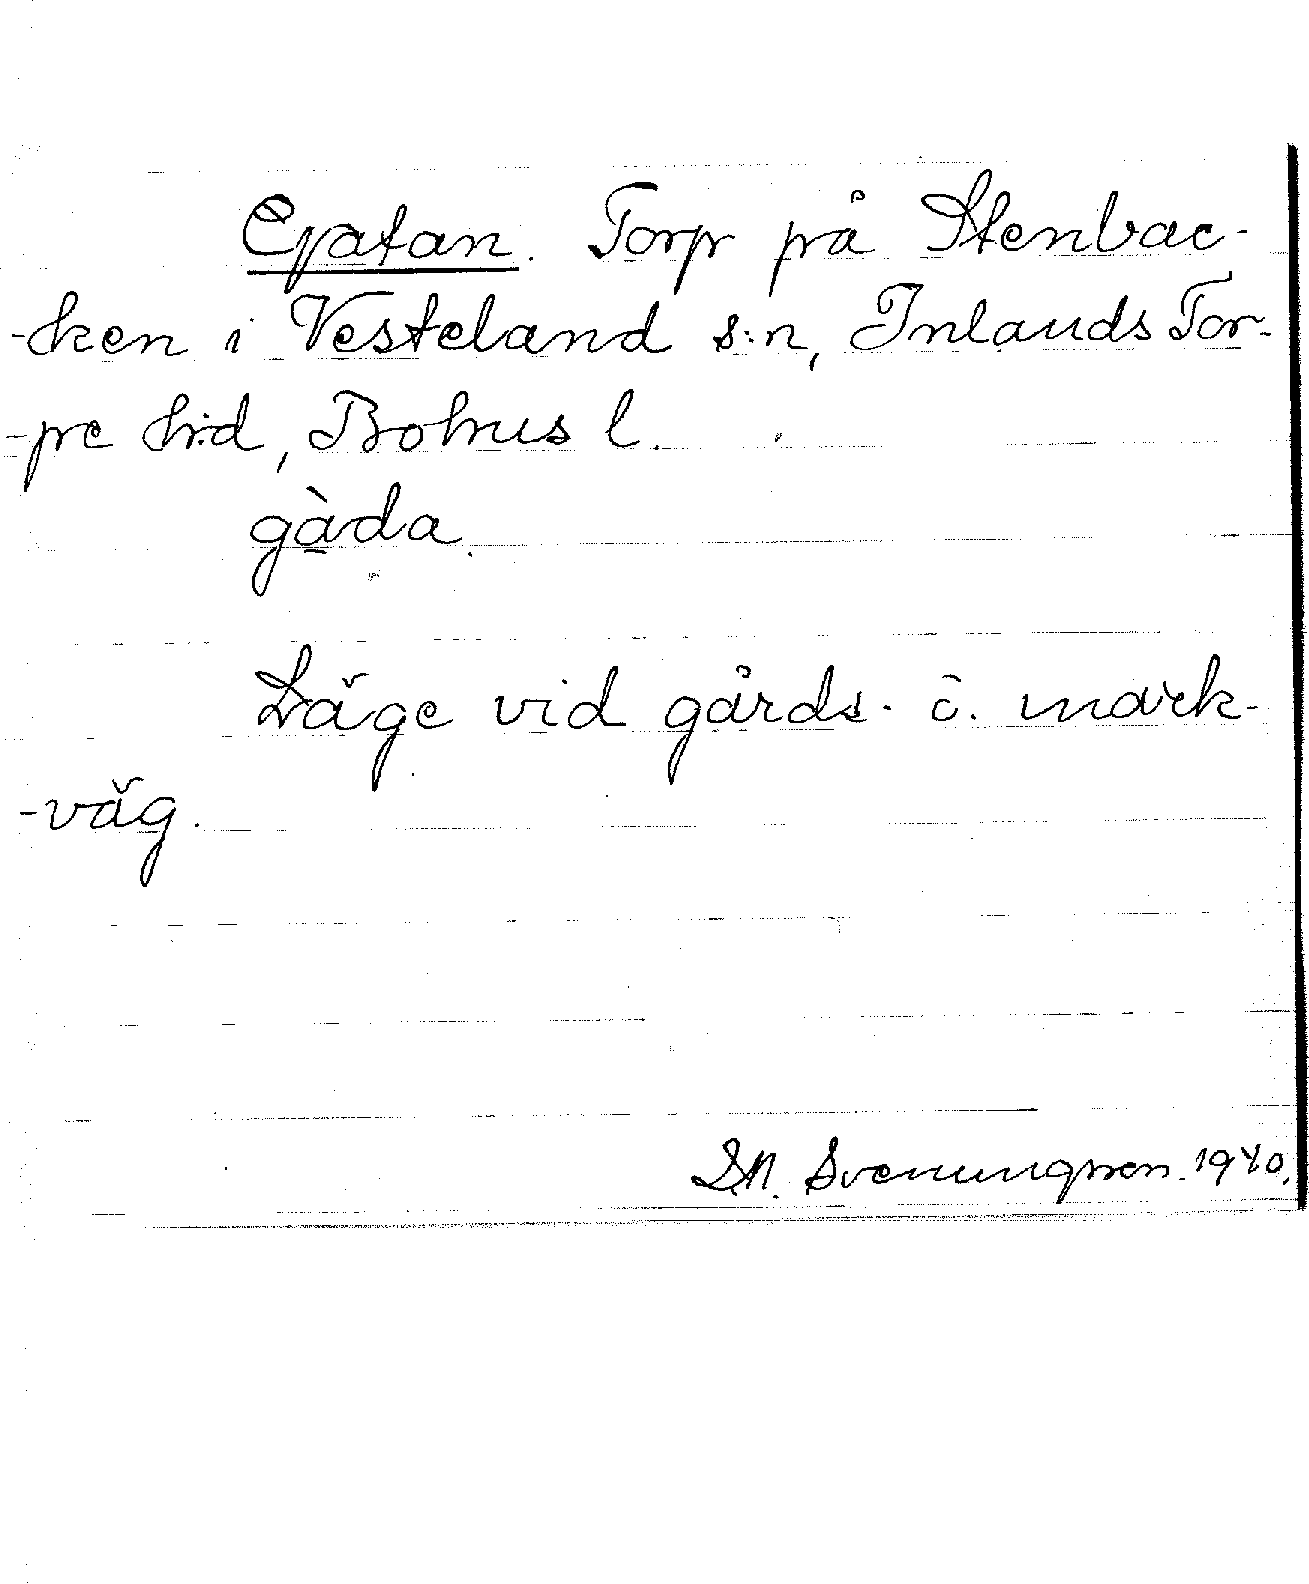 Gatan. Torp på Stenbac-
-ken i Vesteland s:n, Inlands Tor-
-pe h:d, Bohus l.
gàda.
Läge vid gårds- o. mark-
-väg.
S.N. Svenungsson. 1940.